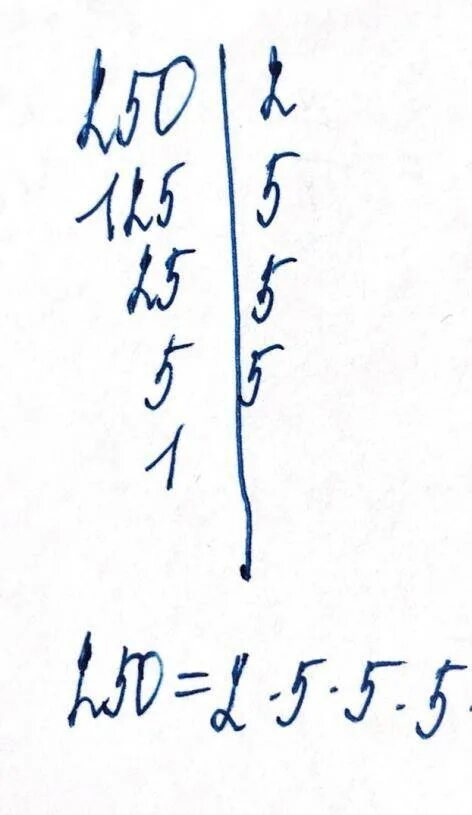 250 | 2
125 | 5
25 | 5
5 | 5
1 |
250 = 2 · 5 · 5 · 5 ·